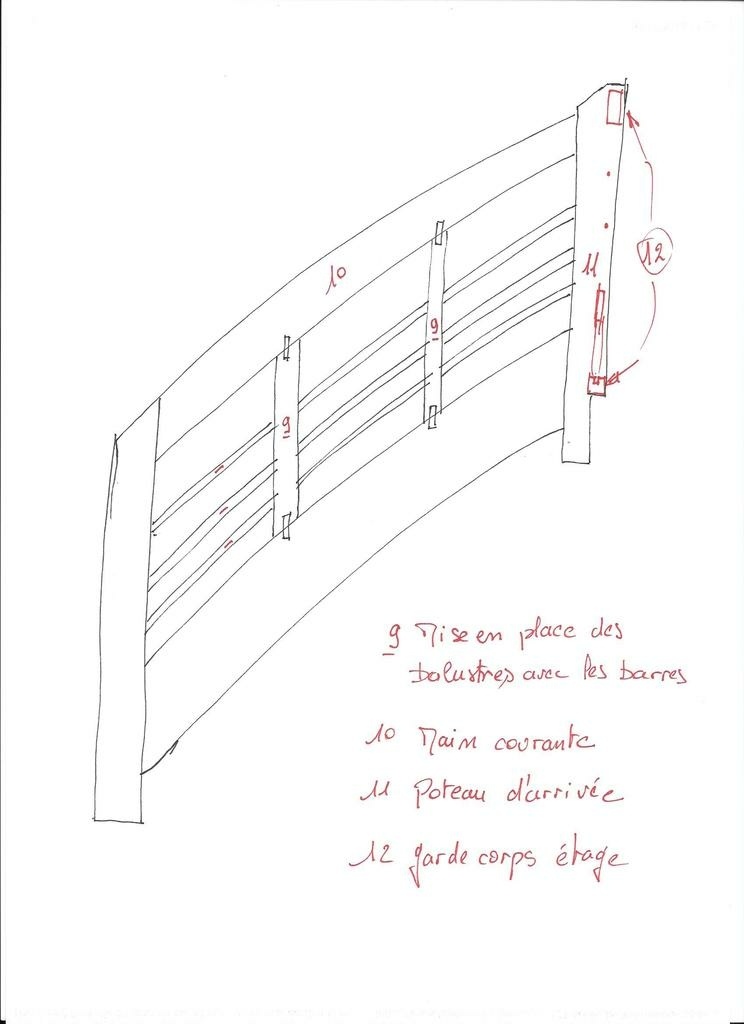 10
11
12
9
9
9 Mise en place des
balustres avec les barres
10 Main courante
11 Poteau d'arrivée
12 garde corps étage